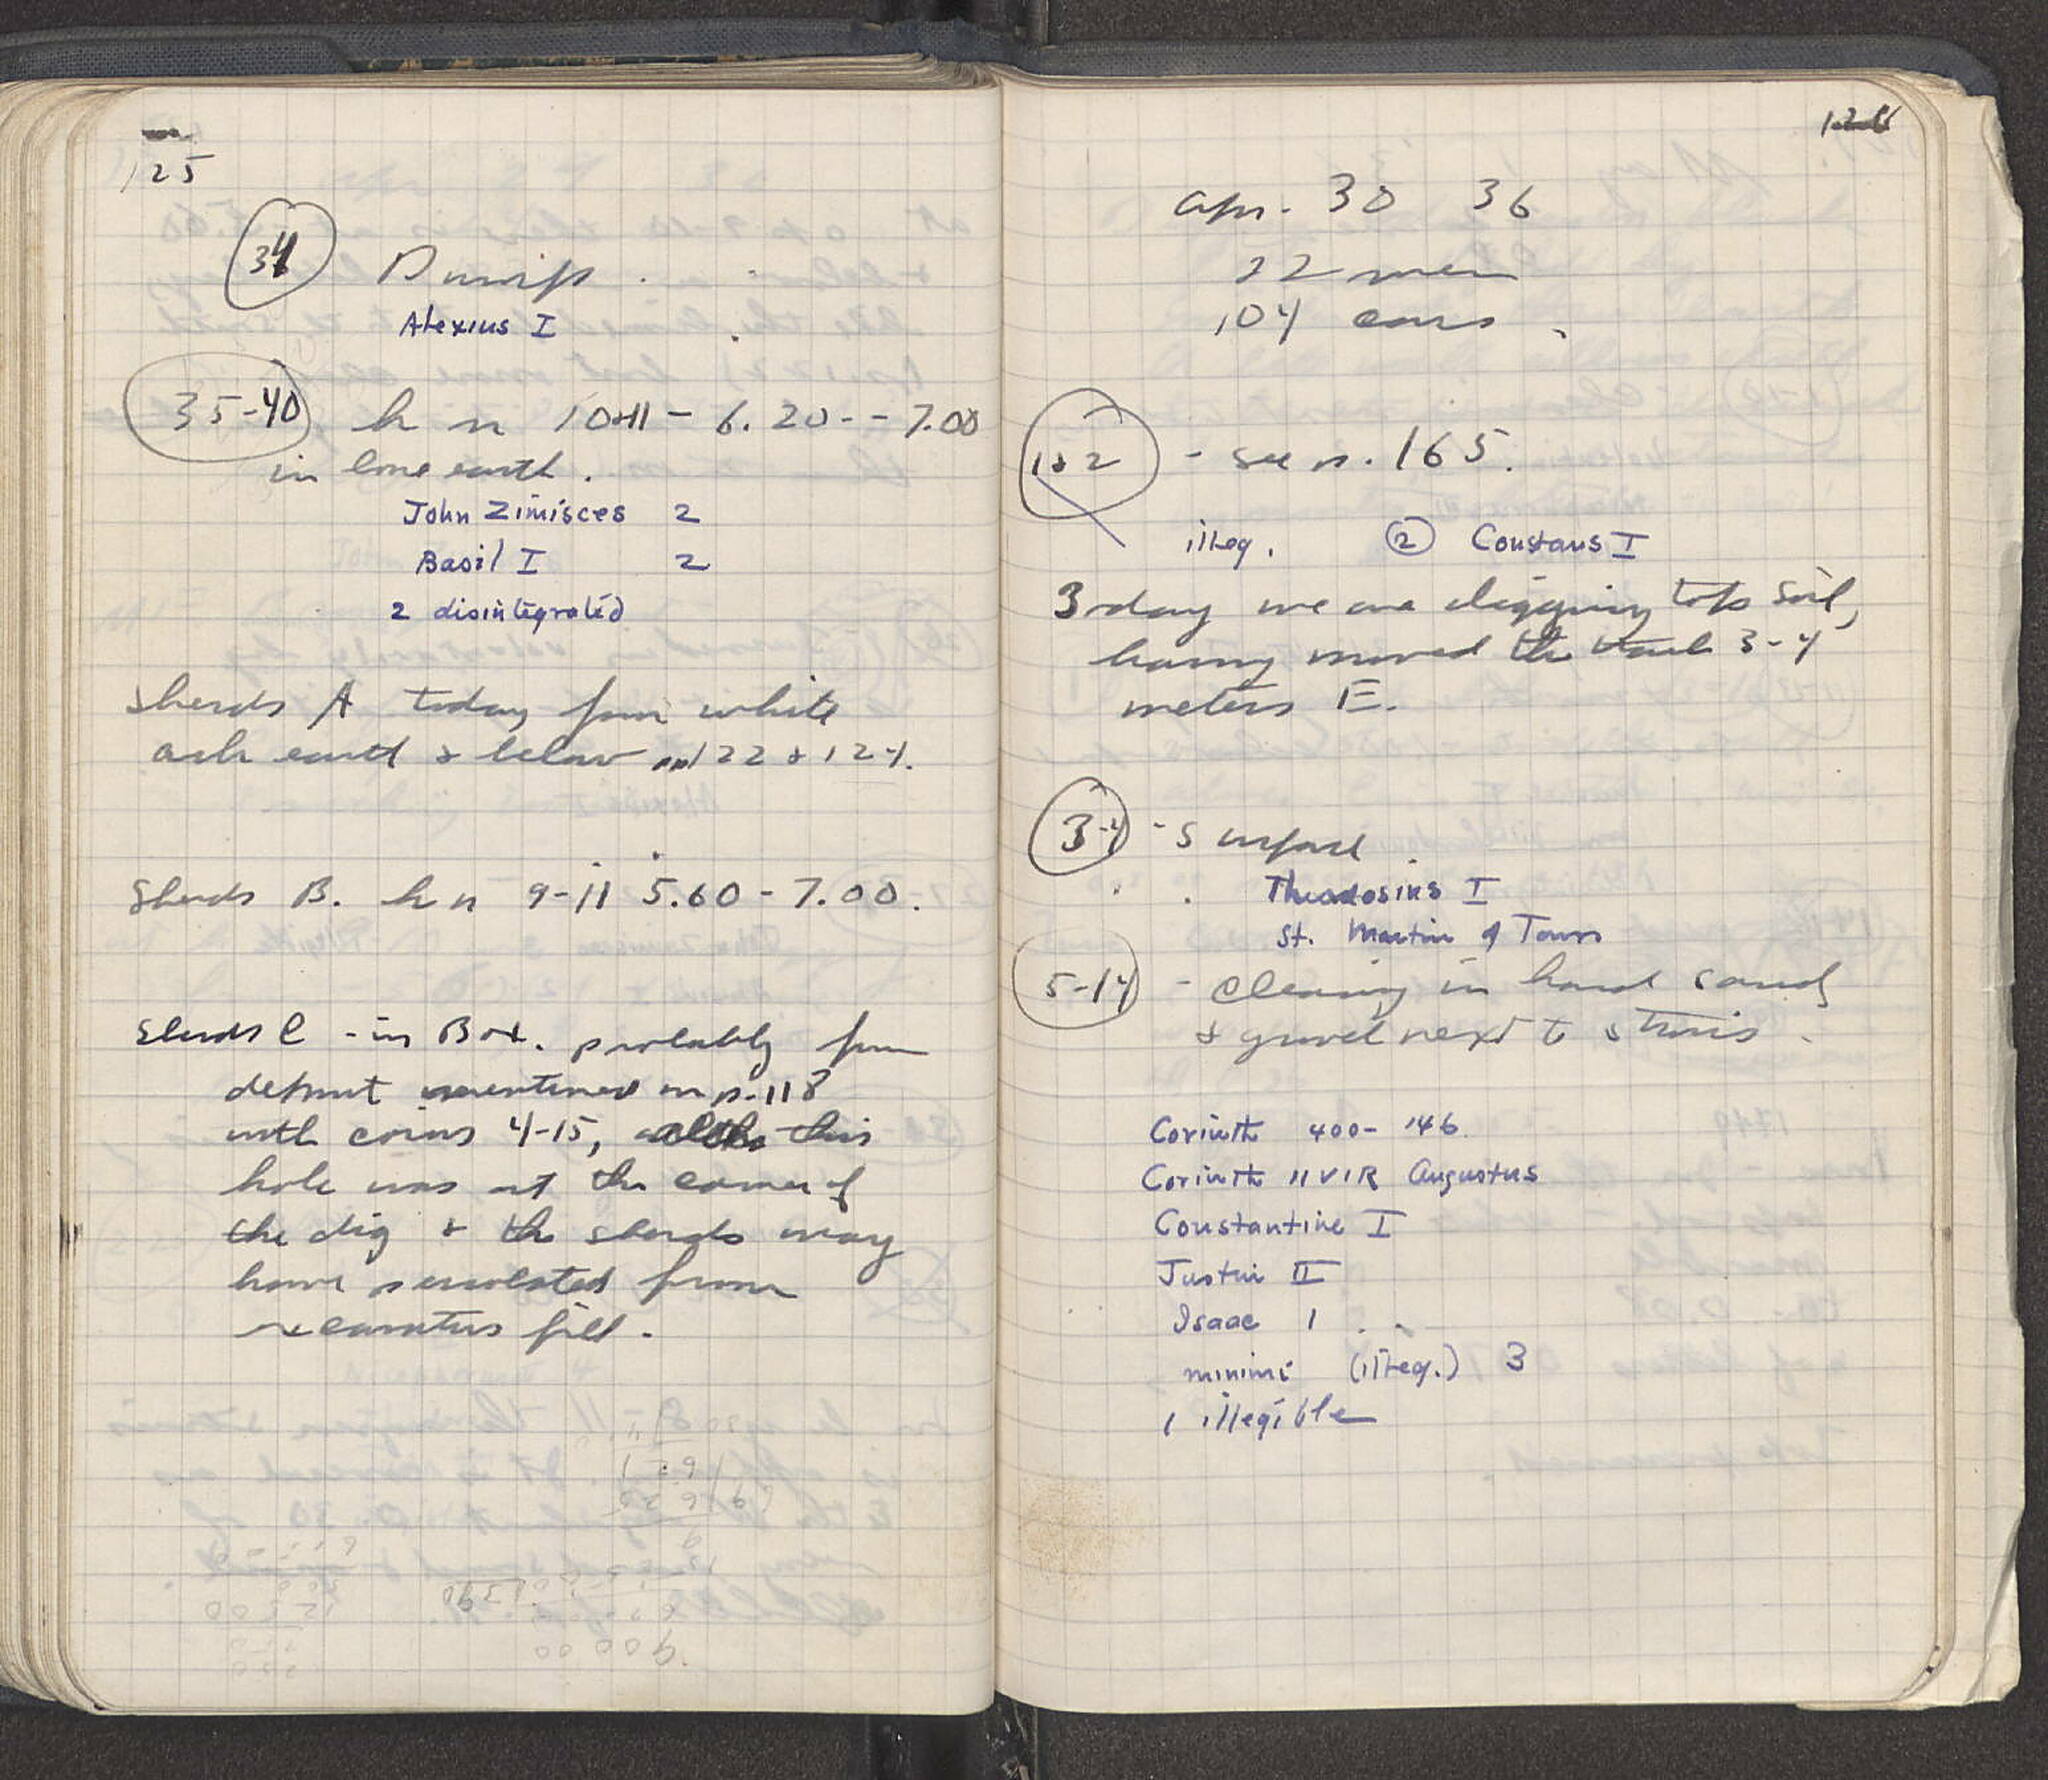 125
34 Dump.
Alexius I
35-40 h n 10+11 - 6.20 - - 7.00
in loose earth.
John Zimisces 2
Basil I 2
2 disintegrated
Sherds A today from white
ash earth & below pp 122 & 124.
Sherds B. h n 9-11 5.60 - 7.00.
Sherds C - in Box. probably from
deposit mentioned on p. 118
with coins 4-15, altho this
hole was at the corner of
the dig & the sherds may
have percolated from
fill.
126
Apr. 30 36
22 men
104 cars.
1+2 - see p. 165.
illeg. 2 Constans I
day we are digging top soil,
having moved the 3-4
meters E.
3-4 - Surface
Theodosius I
St. Martin of Tours
5-14 - Cleaning in hard sand
& gravel next to stairs.
Corinth 400-146
Corinth II VIR Augustus
Constantine I
Justin II
Isaac 1
minimi (illeg.) 3
1 illegible